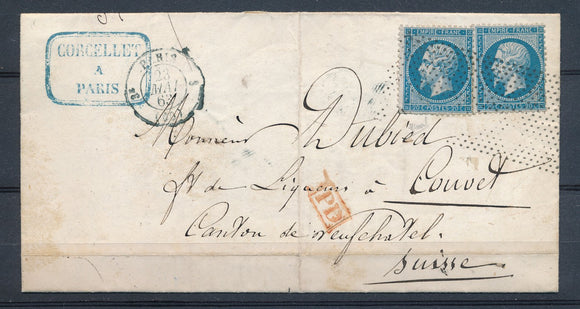 CORCELLET
A
PARIS
PARIS
EMPIRE FRANC.
EMPIRE FRANC.
20 C POSTES 20 C
20 C POSTES 20 C
Monsieur Dubied
ft de Liqueurs à Couvet
PD
Canton de neufchatel.
Suisse